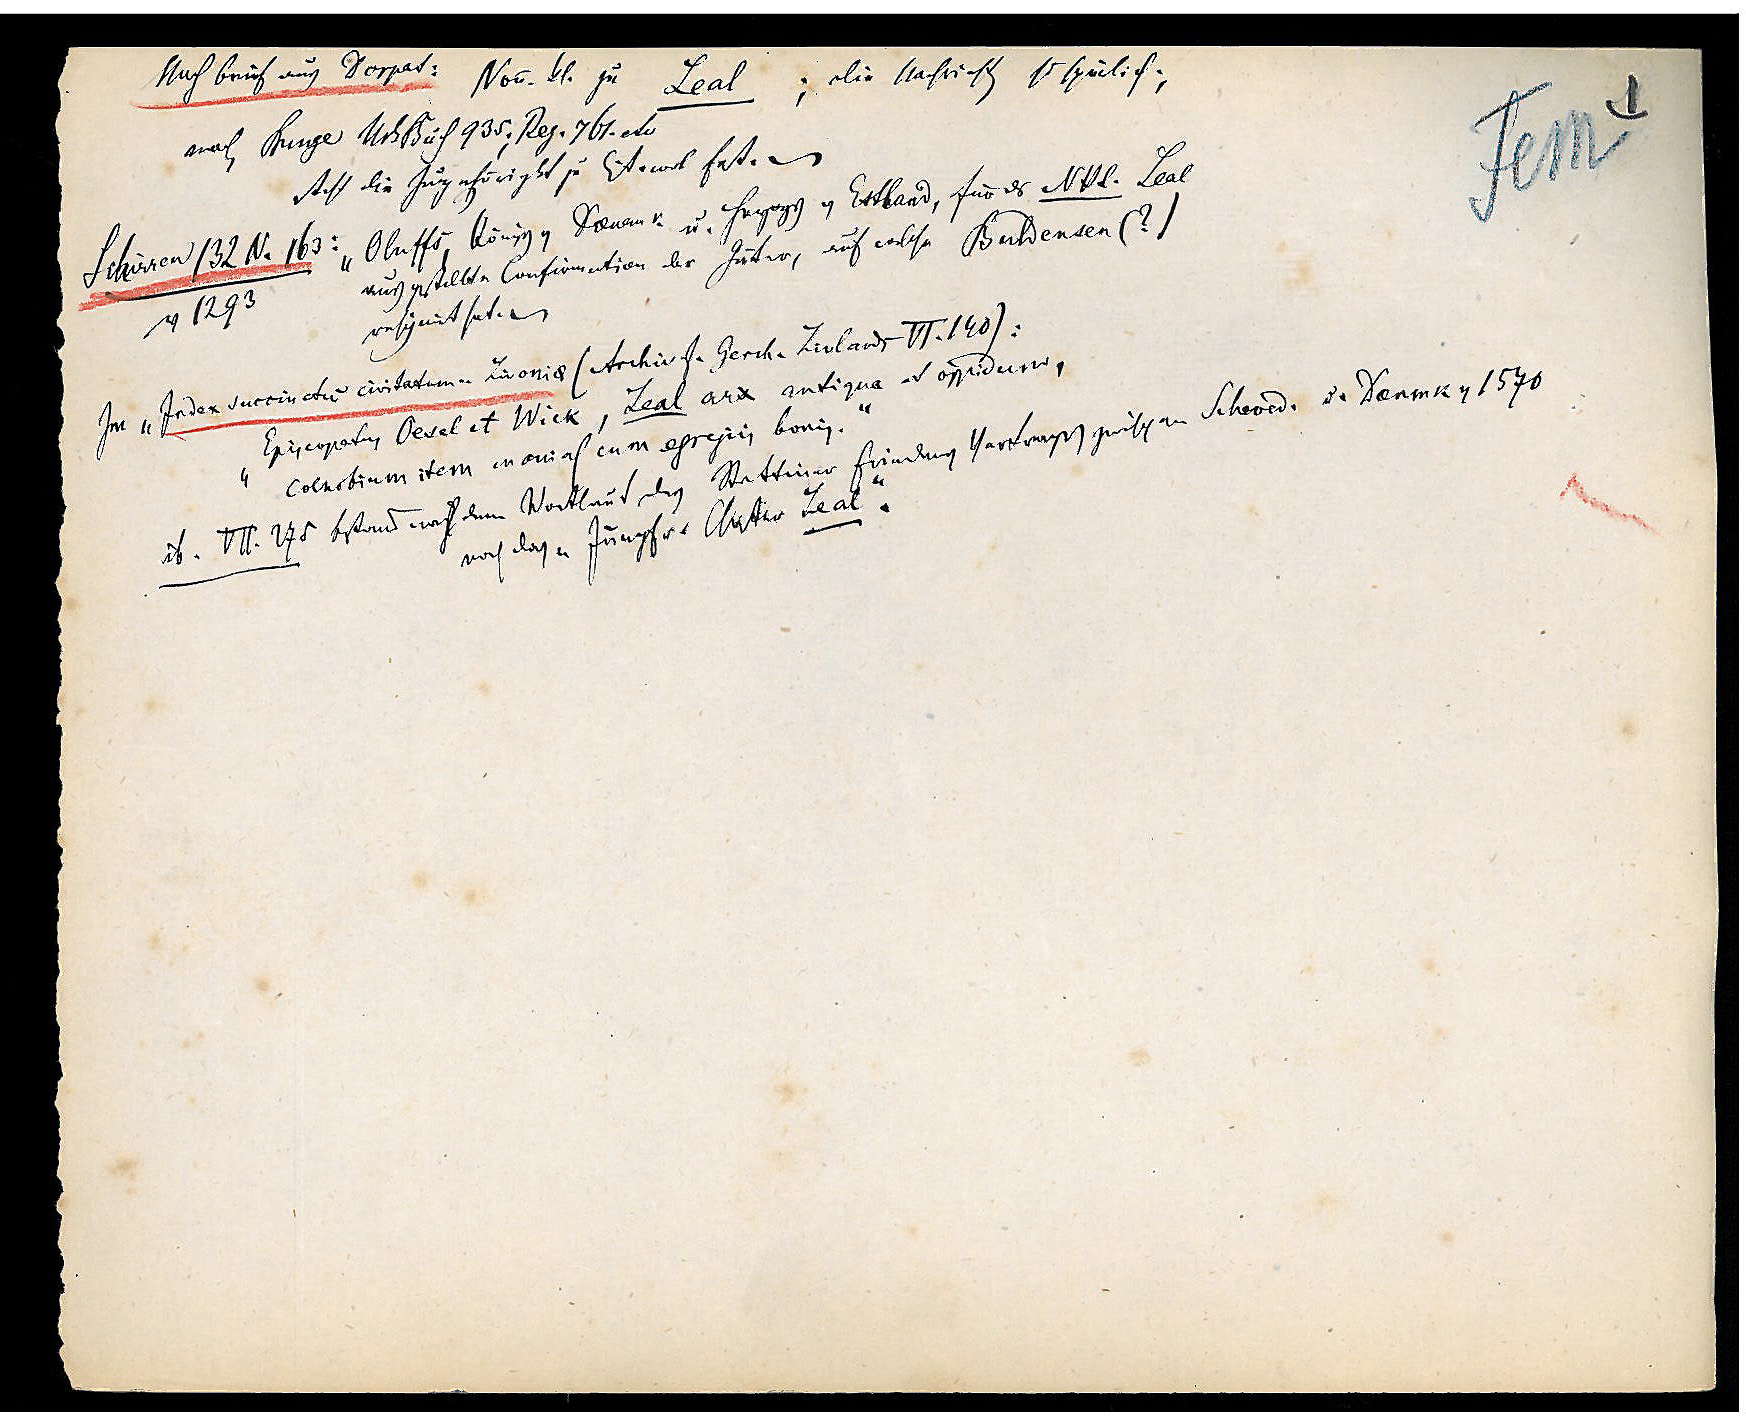 Nach brief aus Dorpat: Non̄. kl. zu Leal ; die Nachricht ist spärlich;
nach Bunge UrkBuch 935; Reg. 761. etc
steht die Zugehörigkt zu Cist. ord. fest.
Fem 1
Schirren 132 N. 163: „Oluffs, König v Dænemk u. Herzogs v Estland, für das NKl. Leal
v 1293 ausgestellte Confirmation der Güter, auf welche Buldensen (?)
resignirt hat.
Im „Index succinctus civitatum Livoniæ (Archiv f. Gesch. Livlands VI. 140):
„Episcopatus Oesel et Wick, Leal arx antiqua et oppidum,
coenobium item monial cum egregiis bonis.“
ib. VII. 275 bestand nach dem Wortlaut des Stettiner Friedens Vertrages zwischen Schwed. u. Dænmk v 1570
noch das „Jungfr. Closter Leal“.